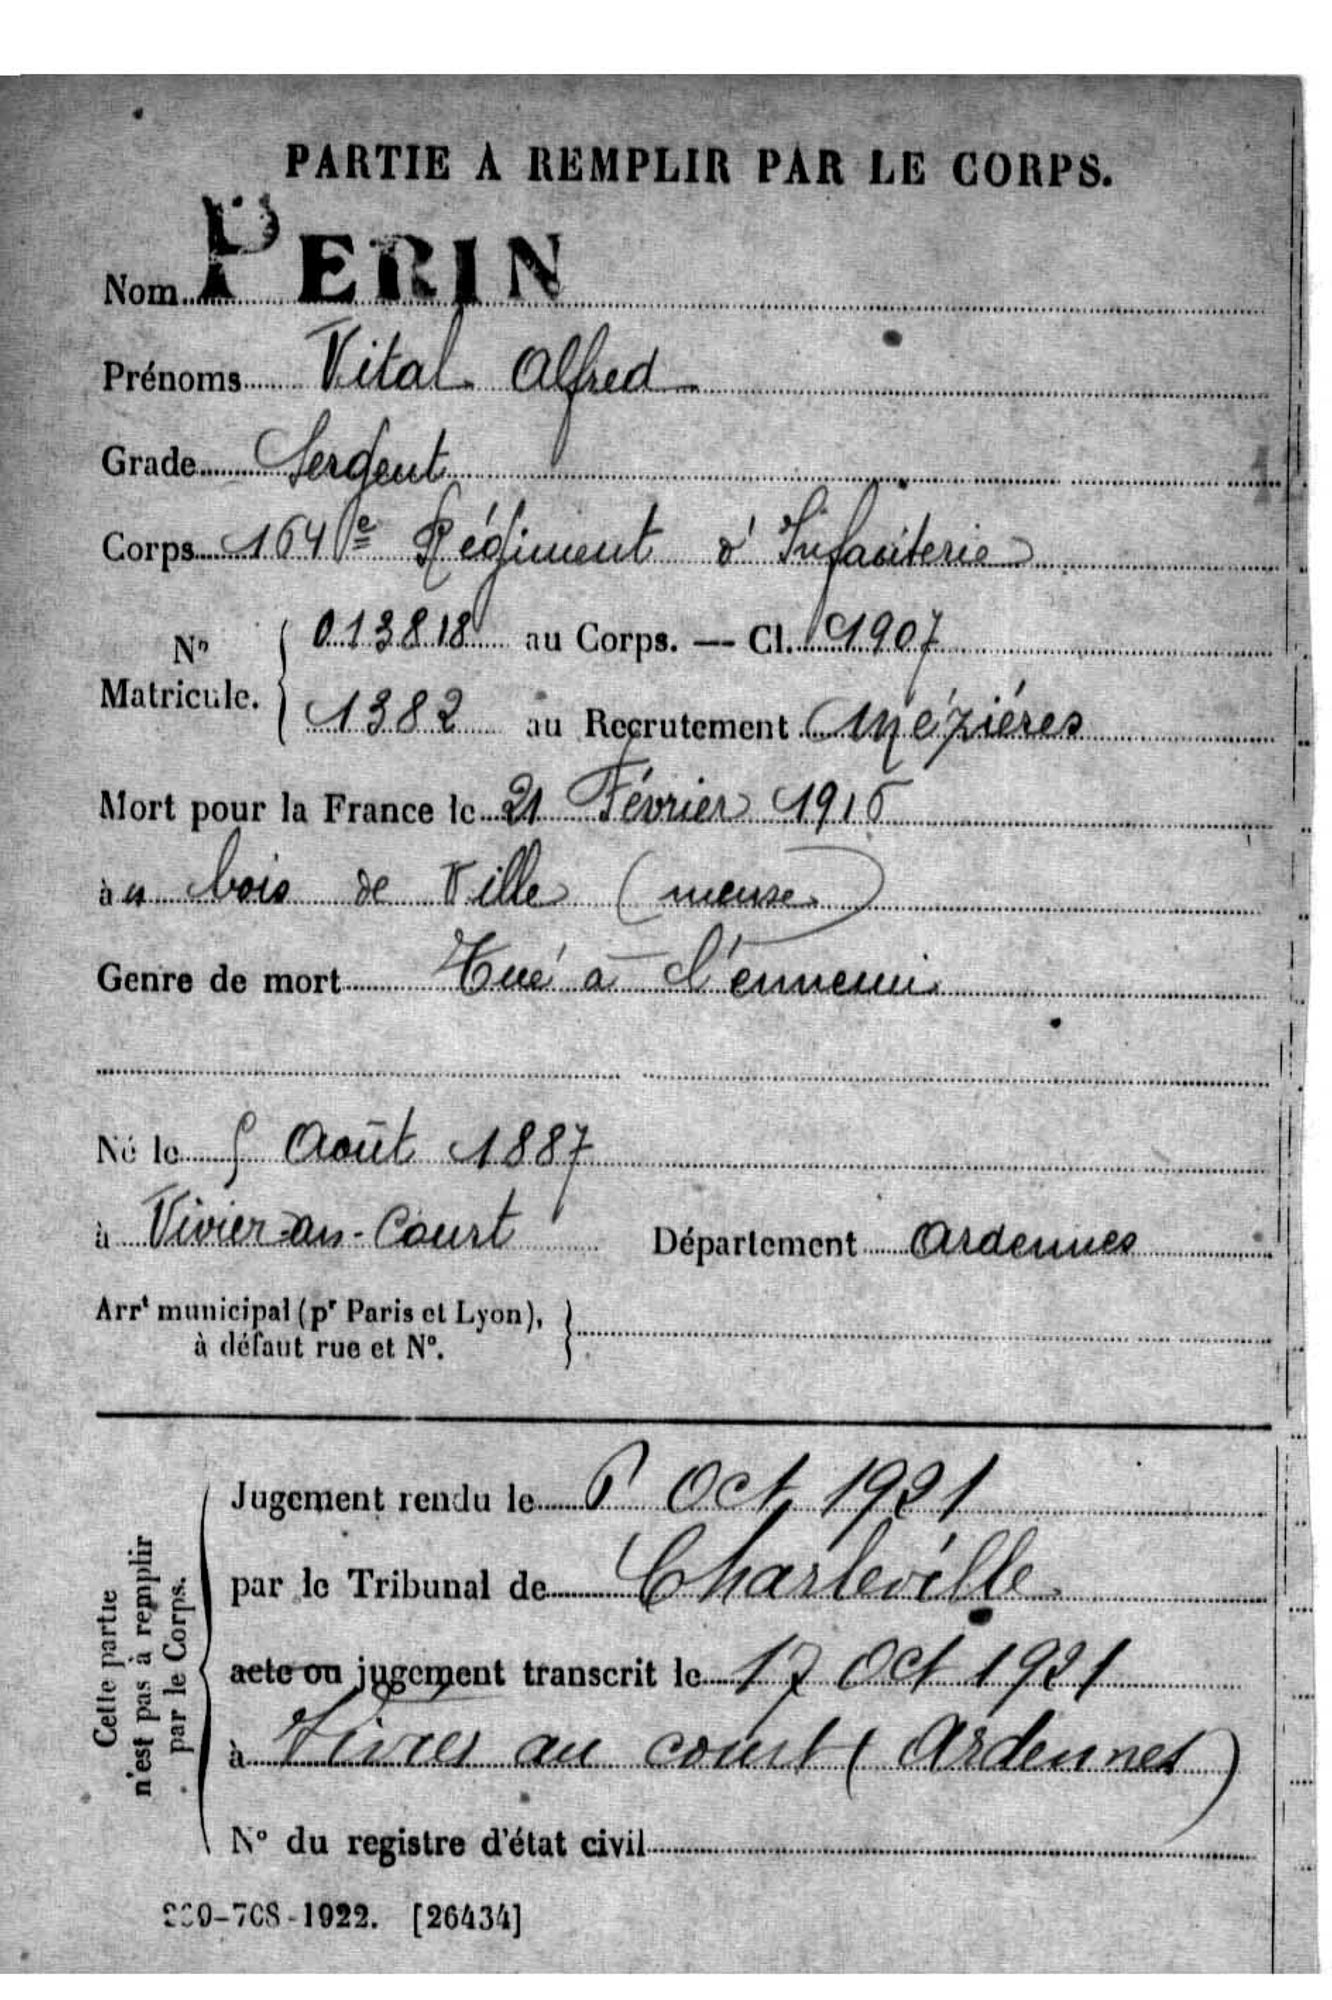 PARTIE A REMPLIR PAR LE CORPS.
Nom PERIN
Prénoms Vital Alfred
Grade Sergent
Corps 164e Régiment d'Infanterie
No Matricule. { 013818 au Corps. — Cl. 1907
1382 au Recrutement Mézières
Mort pour la France le 21 Février 1916
à bois de Ville (meuse)
Genre de mort Tué à l'ennemi
Né le 5 Août 1887
à Vivier-au-Court Département Ardennes
Arrt municipal (pr Paris et Lyon),
à défaut rue et N°.
Cette partie
n'est pas à remplir
par le Corps.
Jugement rendu le Oct 1921
par le Tribunal de Charleville
acte ou jugement transcrit le 17 Oct 1921
à Vivier au court (Ardennes)
N° du registre d'état civil
-708-1922. [26434]